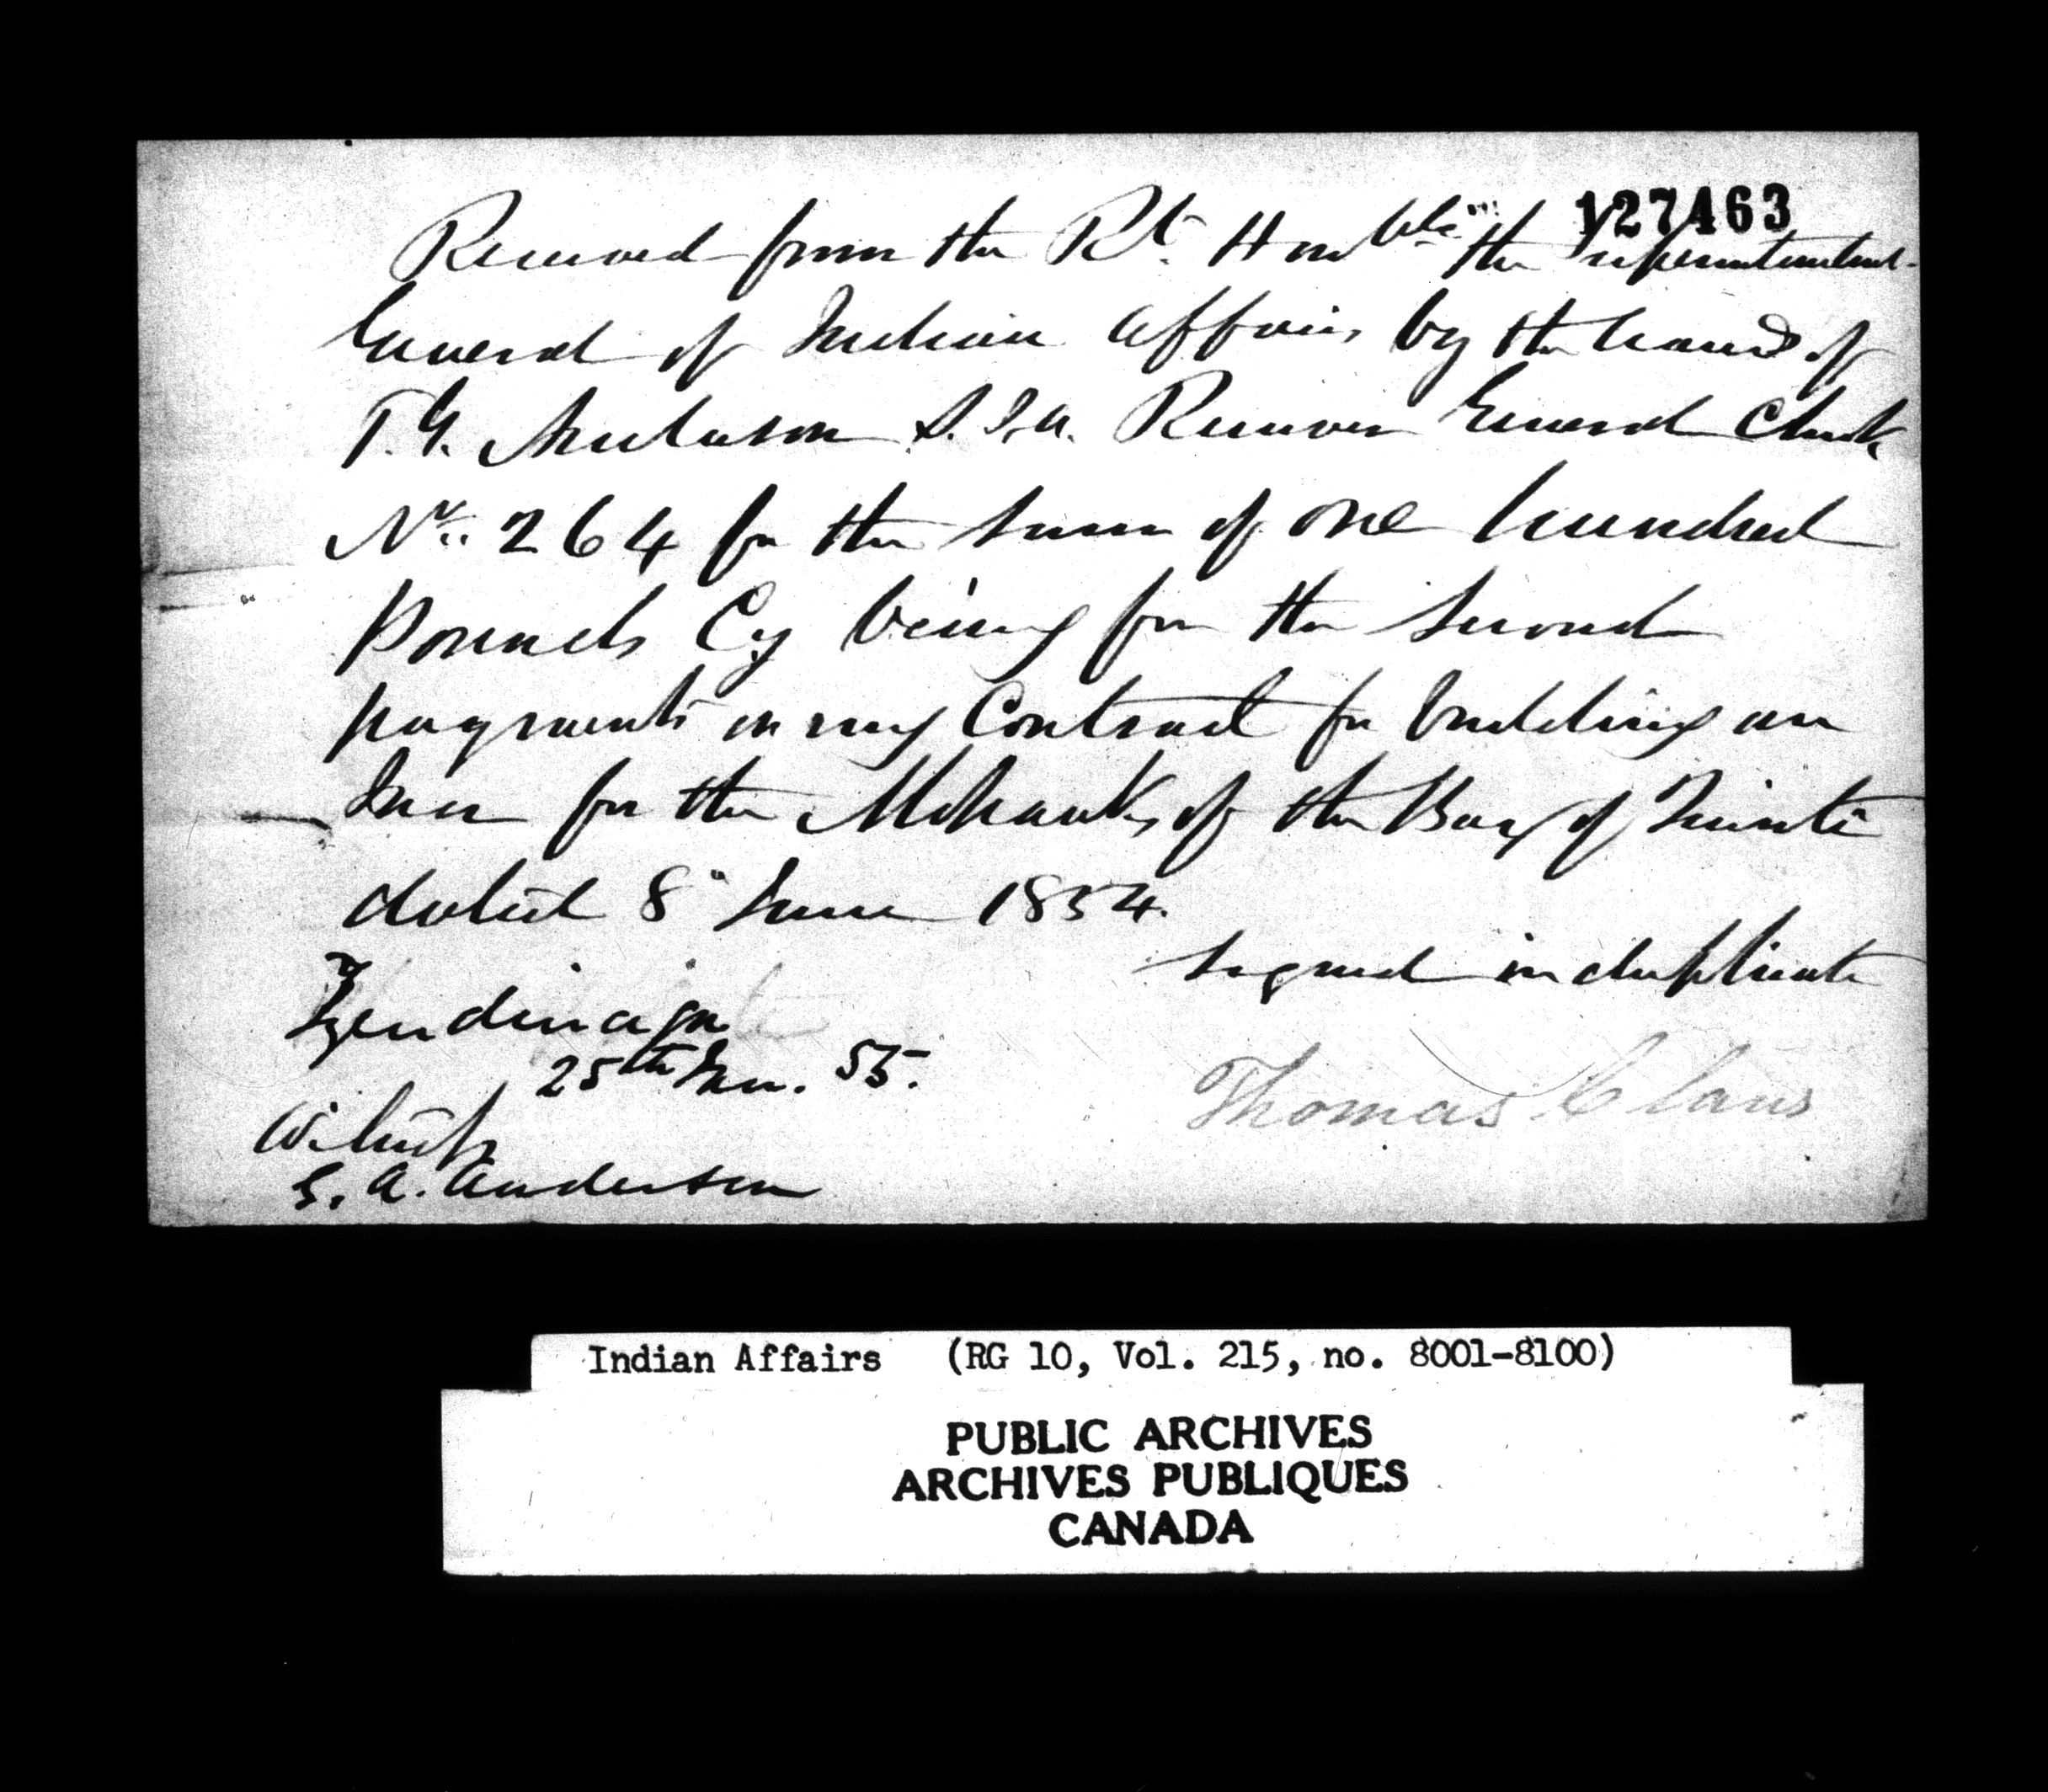 127463
Received from the Rt. Honble the Superintendent
General of Indian Affairs by the hands of
T. G. Anderson S.I.A. Receiver General Check
No. 264 for the sum of one hundred
pounds Cy being for the second
payments on my Contract for building an
Inn for the Mohawks of the Bay of Quinte
dated 8th June 1854.
Signed in duplicate
Tyendinaga
25th Jan. 55.
Thomas Claus
Witness
G. A. Anderson
Indian Affairs (RG 10, Vol. 215, no. 8001-8100)
PUBLIC ARCHIVES
ARCHIVES PUBLIQUES
CANADA